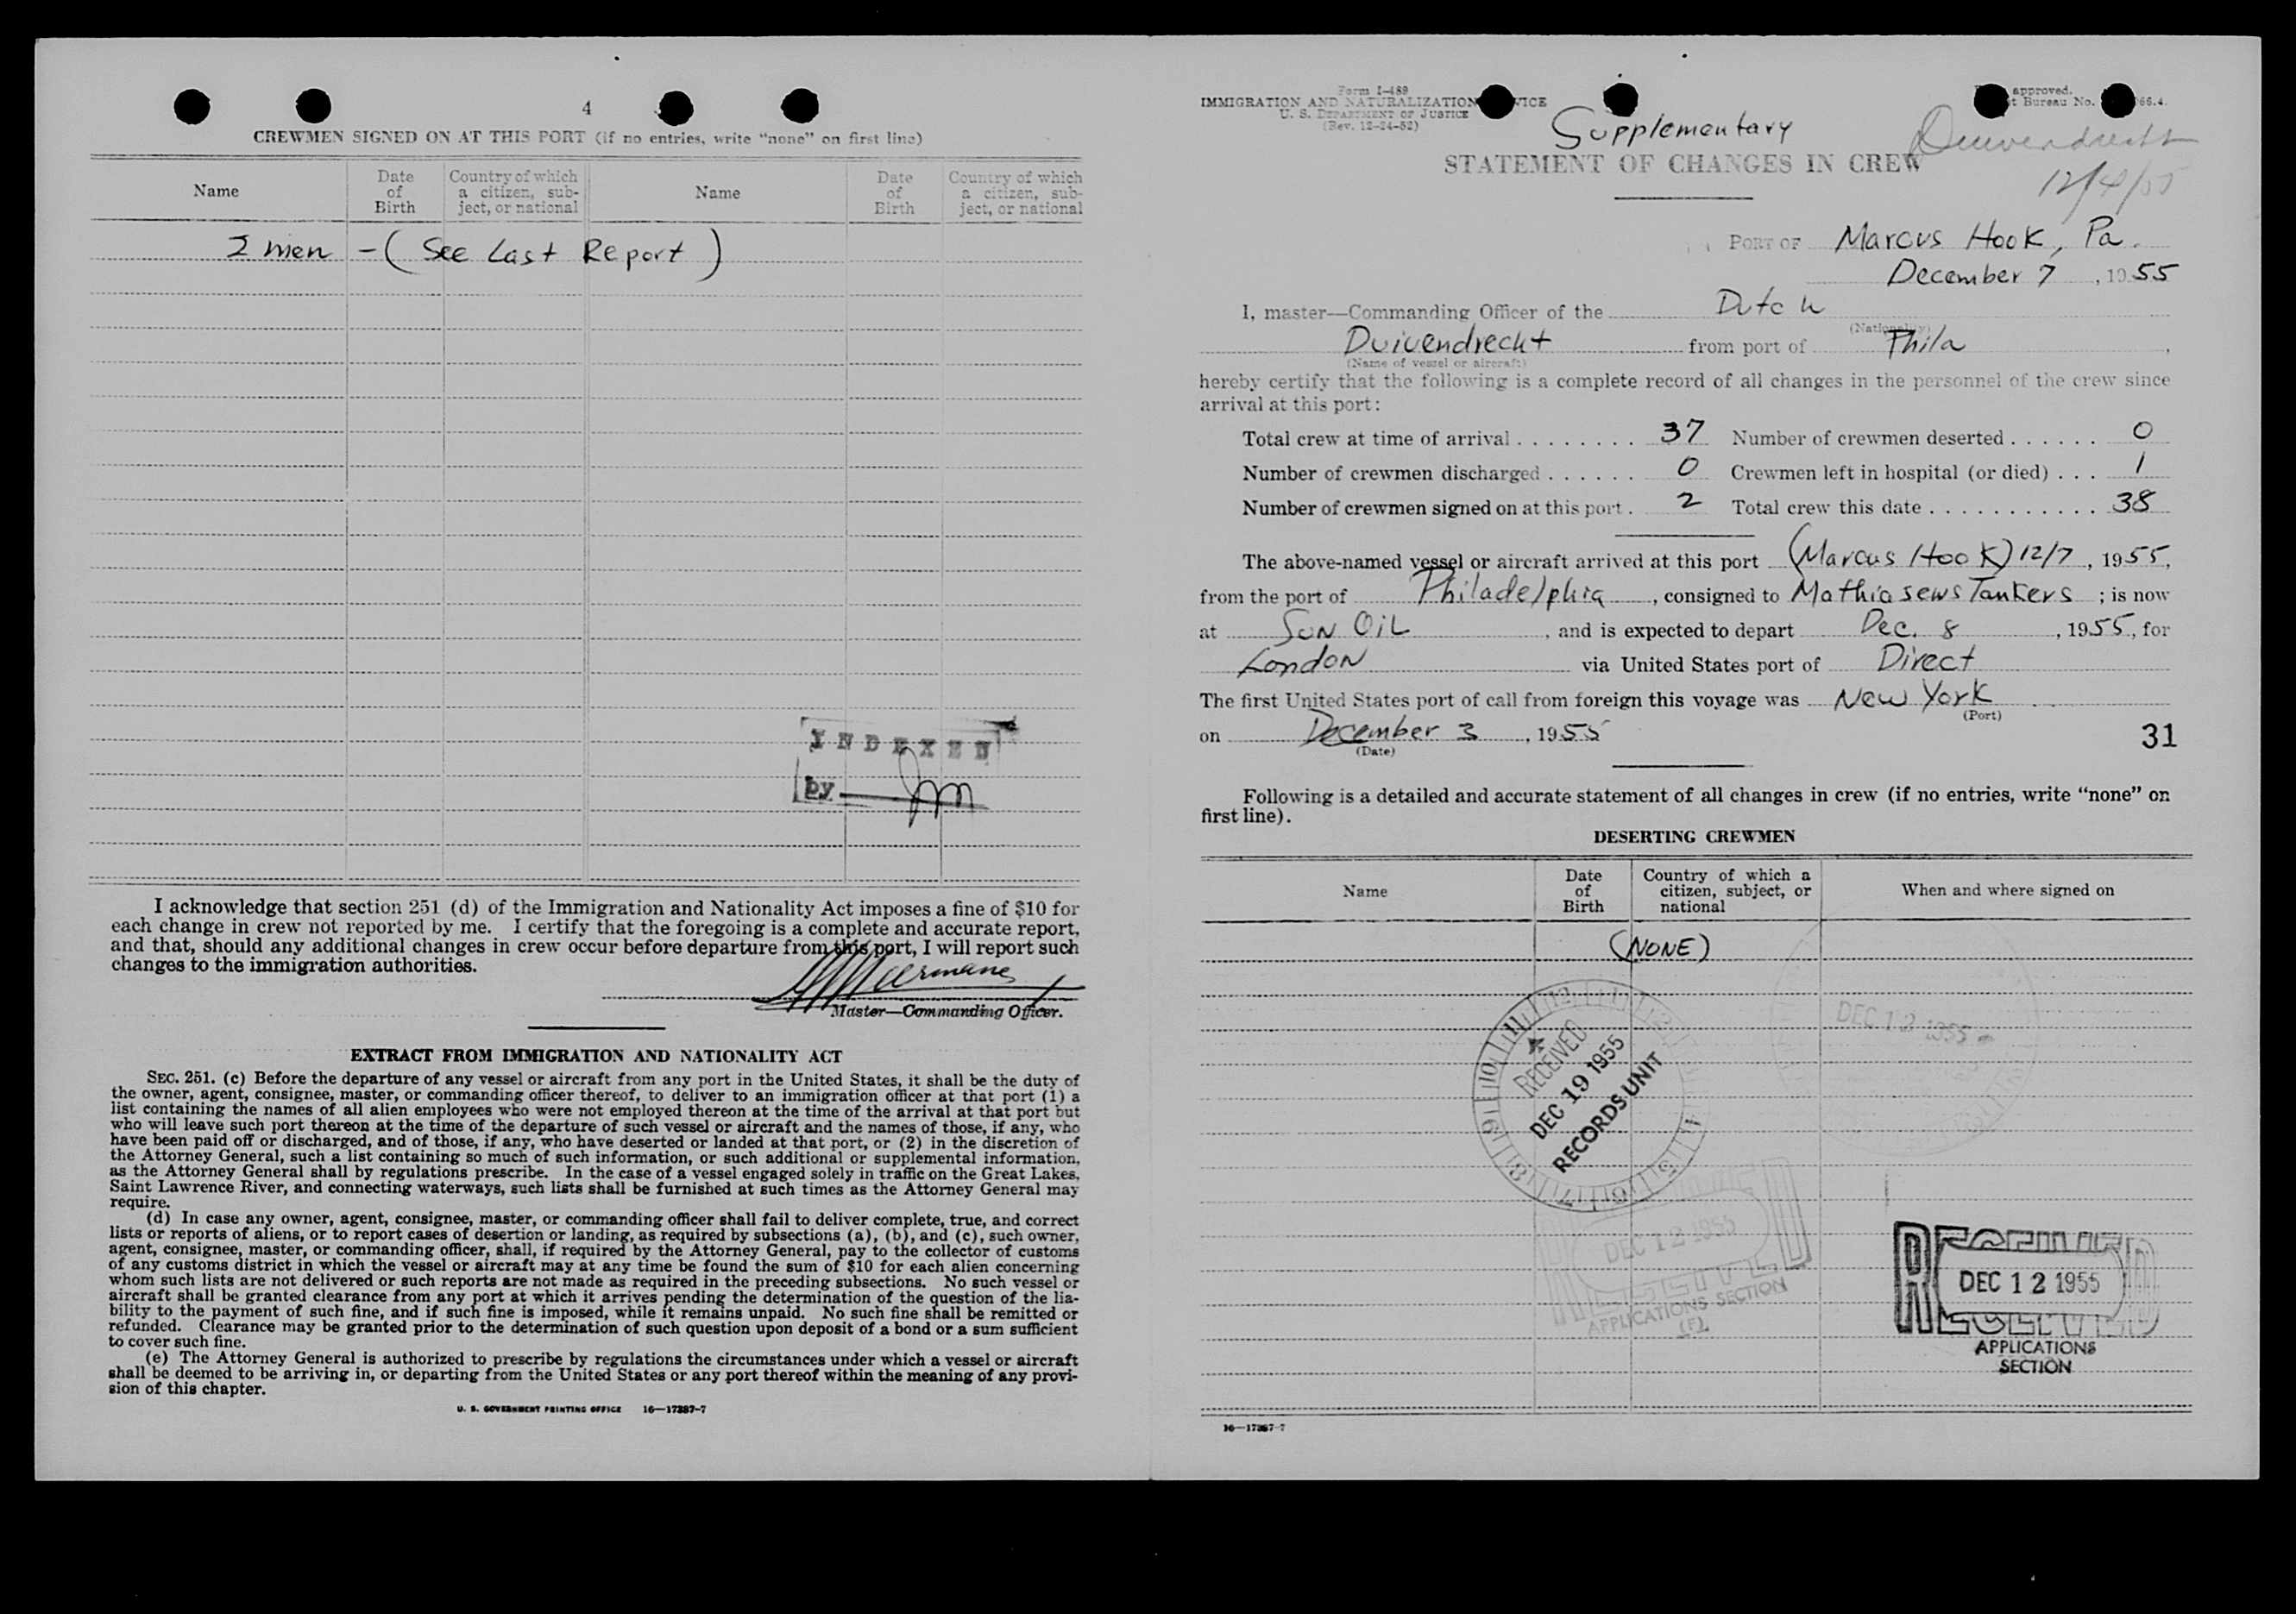 4
CREWMEN SIGNED ON AT THIS PORT (if no entries, write "none" on first line)
Name
Date of Birth
Country of which a citizen, subject, or national
Name
Date of Birth
Country of which a citizen, subject, or national
2 men - ( See Last Report )
INDEXED
by
I acknowledge that section 251 (d) of the Immigration and Nationality Act imposes a fine of $10 for
each change in crew not reported by me. I certify that the foregoing is a complete and accurate report,
and that, should any additional changes in crew occur before departure from this port, I will report such
changes to the immigration authorities.
Master—Commanding Officer.
EXTRACT FROM IMMIGRATION AND NATIONALITY ACT
SEC. 251. (c) Before the departure of any vessel or aircraft from any port in the United States, it shall be the duty of
the owner, agent, consignee, master, or commanding officer thereof, to deliver to an immigration officer at that port (1) a
list containing the names of all alien employees who were not employed thereon at the time of the arrival at that port but
who will leave such port thereon at the time of the departure of such vessel or aircraft and the names of those, if any, who
have been paid off or discharged, and of those, if any, who have deserted or landed at that port, or (2) in the discretion of
the Attorney General, such a list containing so much of such information, or such additional or supplemental information,
as the Attorney General shall by regulations prescribe. In the case of a vessel engaged solely in traffic on the Great Lakes,
Saint Lawrence River, and connecting waterways, such lists shall be furnished at such times as the Attorney General may
require.
(d) In case any owner, agent, consignee, master, or commanding officer shall fail to deliver complete, true, and correct
lists or reports of aliens, or to report cases of desertion or landing, as required by subsections (a), (b), and (c), such owner,
agent, consignee, master, or commanding officer, shall, if required by the Attorney General, pay to the collector of customs
of any customs district in which the vessel or aircraft may at any time be found the sum of $10 for each alien concerning
whom such lists are not delivered or such reports are not made as required in the preceding subsections. No such vessel or
aircraft shall be granted clearance from any port at which it arrives pending the determination of the question of the lia-
bility to the payment of such fine, and if such fine is imposed, while it remains unpaid. No such fine shall be remitted or
refunded. Clearance may be granted prior to the determination of such question upon deposit of a bond or a sum sufficient
to cover such fine.
(e) The Attorney General is authorized to prescribe by regulations the circumstances under which a vessel or aircraft
shall be deemed to be arriving in, or departing from the United States or any port thereof within the meaning of any provi-
sion of this chapter.
U. S. GOVERNMENT PRINTING OFFICE 16—17387-7
Form I-489
IMMIGRATION AND NATURALIZATION
U. S. DEPARTMENT OF JUSTICE
(Rev. 12-24-52)
approved.
Bureau No. 66.4.
Supplementary
Duivendrecht
12/4/55
STATEMENT OF CHANGES IN CREW
PORT OF Marcus Hook, Pa.
December 7, 1955
I, master—Commanding Officer of the Dutch
(Nationality)
Duivendrecht from port of Phila,
(Name of vessel or aircraft)
hereby certify that the following is a complete record of all changes in the personnel of the crew since
arrival at this port:
Total crew at time of arrival . . . . . . . . 37 Number of crewmen deserted . . . . . . 0
Number of crewmen discharged . . . . . . 0 Crewmen left in hospital (or died) . . . 1
Number of crewmen signed on at this port . 2 Total crew this date . . . . . . . . . . . 38
The above-named vessel or aircraft arrived at this port (Marcus Hook) 12/7, 1955,
from the port of Philadelphia, consigned to Mathiasens Tankers; is now
at Sun Oil, and is expected to depart Dec. 8, 1955, for
London via United States port of Direct
The first United States port of call from foreign this voyage was New York
(Port)
on December 3, 1955
(Date)
31
Following is a detailed and accurate statement of all changes in crew (if no entries, write "none" on
first line).
DESERTING CREWMEN
Name
Date of Birth
Country of which a citizen, subject, or national
When and where signed on
(NONE)
DEC 12 1955
RECEIVED
DEC 19 1955
RECORDS UNIT
DEC 12 1955
RECEIVED
APPLICATIONS SECTION
(F)
RECEIVED
DEC 12 1955
RECEIVED
APPLICATIONS
SECTION
16—17387-7